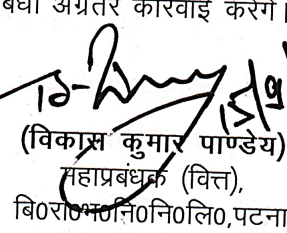 अग्रतर कार्रवाई करेंगे।
(विकास कुमार पाण्डेय)
महाप्रबंधक (वित्त),
बि0रा0भ0नि0नि0लि0,पटना